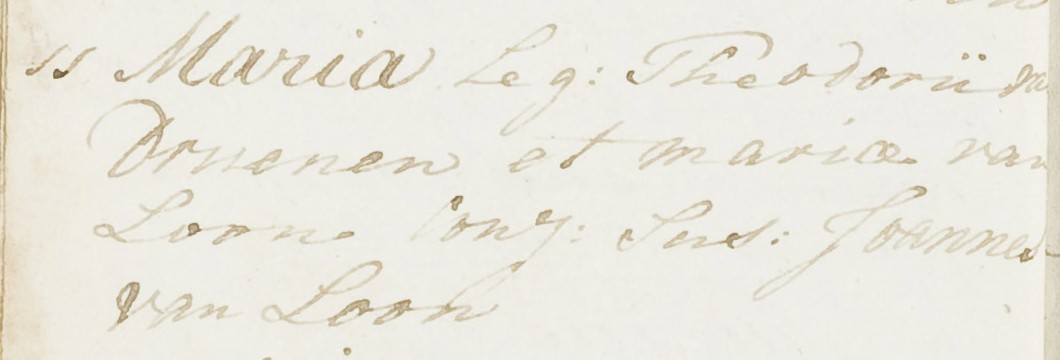 11 Maria Leg: Theodorii va
Drunenen et mariæ van
Loon Conj: Sus: Joannes
van Loon